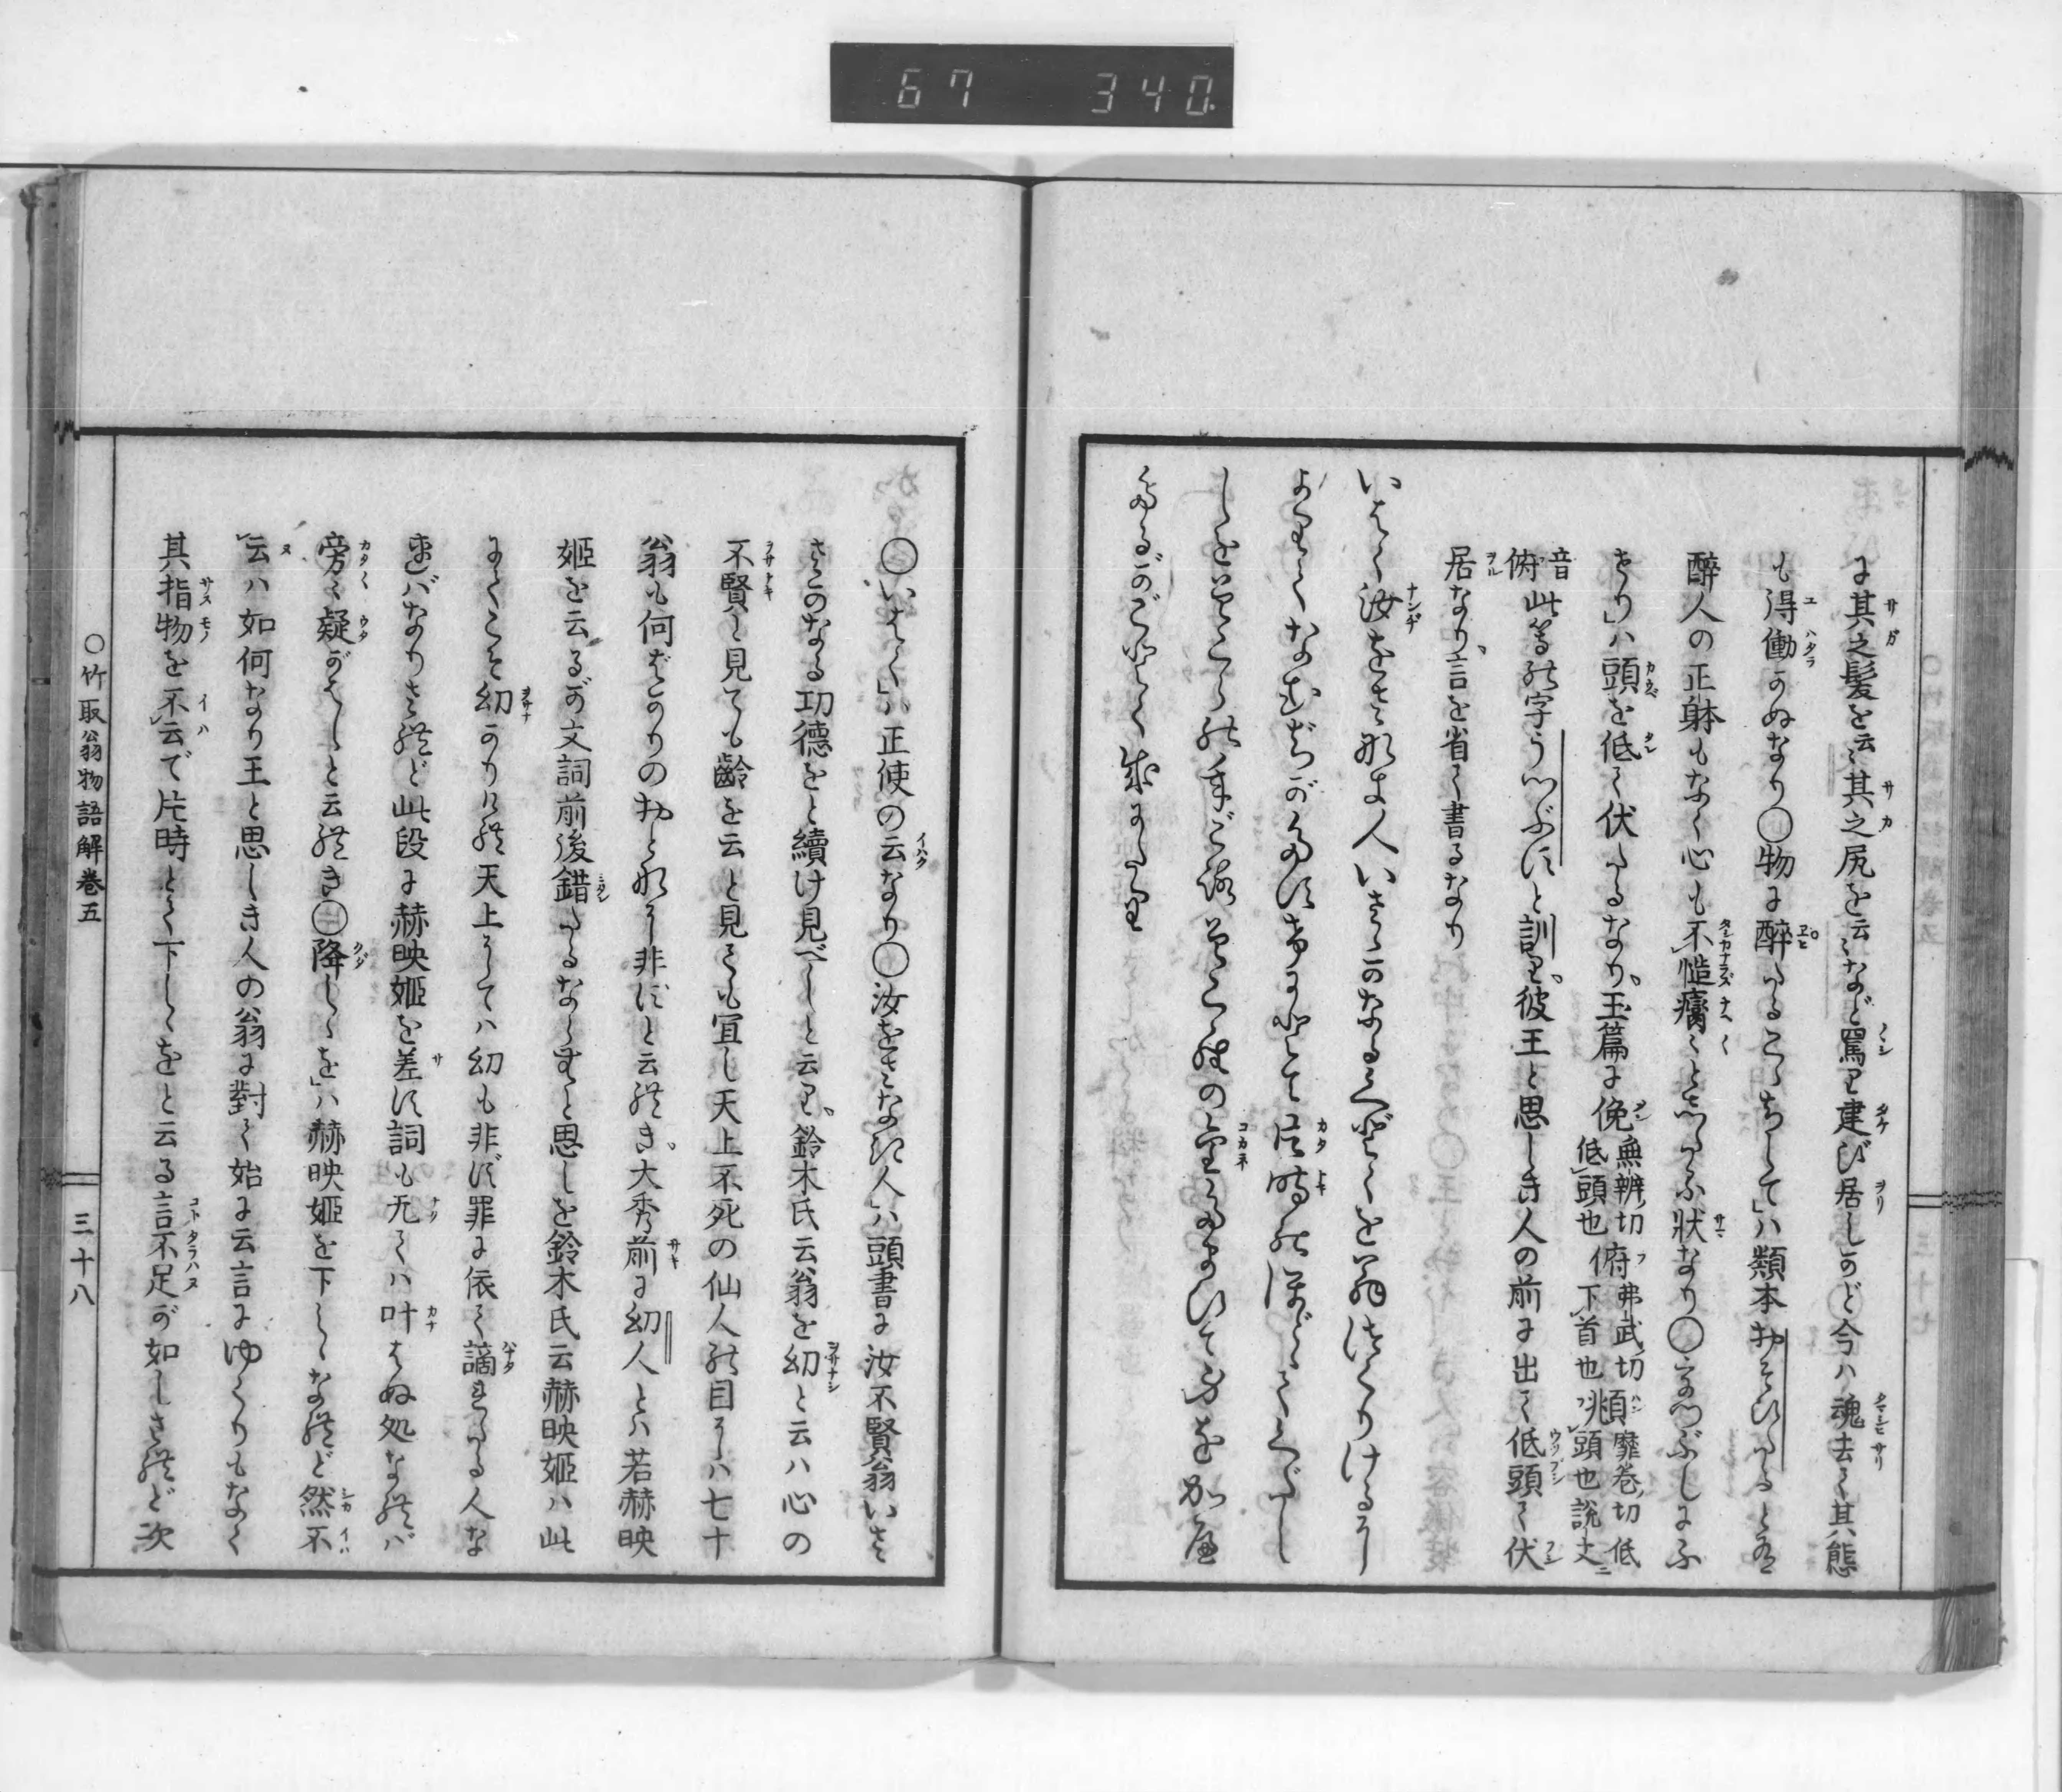 67 340
に其之髪を云々其之尻を云々など罵り建び居しかど今ハ魂去て其態
も得働かぬなり○物に醉たるこゝちして」ハ類本おそひたるとある
醉人の正躰もなく心も不慥痛々としたふ状なり○うつぶしにふ
せり」ハ頭を低て伏たるなり。玉篇に俛無辨切低頭也俯弗武切下首也頫靡卷切低頭也説文ニ
音俯此等の字うつぶすと訓り。彼王と思しき人の前に出て低頭て伏
居なり。言を省て書るなり
いはく汝をさなき人いさゝかなるくどくを翁つくりけるに
よりてなむぢがたすけにとて片時のほどとてくだし
しをそこらの年ごろそこらの金たまひて身をかへ
たるがごとく成にたり
○竹取翁物語解卷五
三十八
○いはく」ハ正使の云なり○汝をさなき人」ハ頭書に汝不賢翁いさ
さかのなる功德をと續け見べしと云り。鈴木氏云翁を幼と云ハ心の
不賢と見ても齡を云と見ても宜し天上不死の仙人の目にハ七十
翁も何ばかりのおとなに非ずと云れき。大秀前に幼人とハ若赫映
姬を云るが文詞前後錯たるならむと思しを鈴木氏云赫映姬ハ此
にてこそ幼かりけれ天上にてハ幼も非ず罪に依て謫れたる人な
連バなりされど此段に赫映姬を差す詞も无てハ叶はぬ処なれバ
旁々疑がはしと云れき○降しゝを」ハ赫映姬を下しゝなれど然不
云ハ如何なり王と思しき人の翁に對て始に云言にゆくりもなく
其指物を不云で片時とて下しゝをと云る言不足が如しされど次